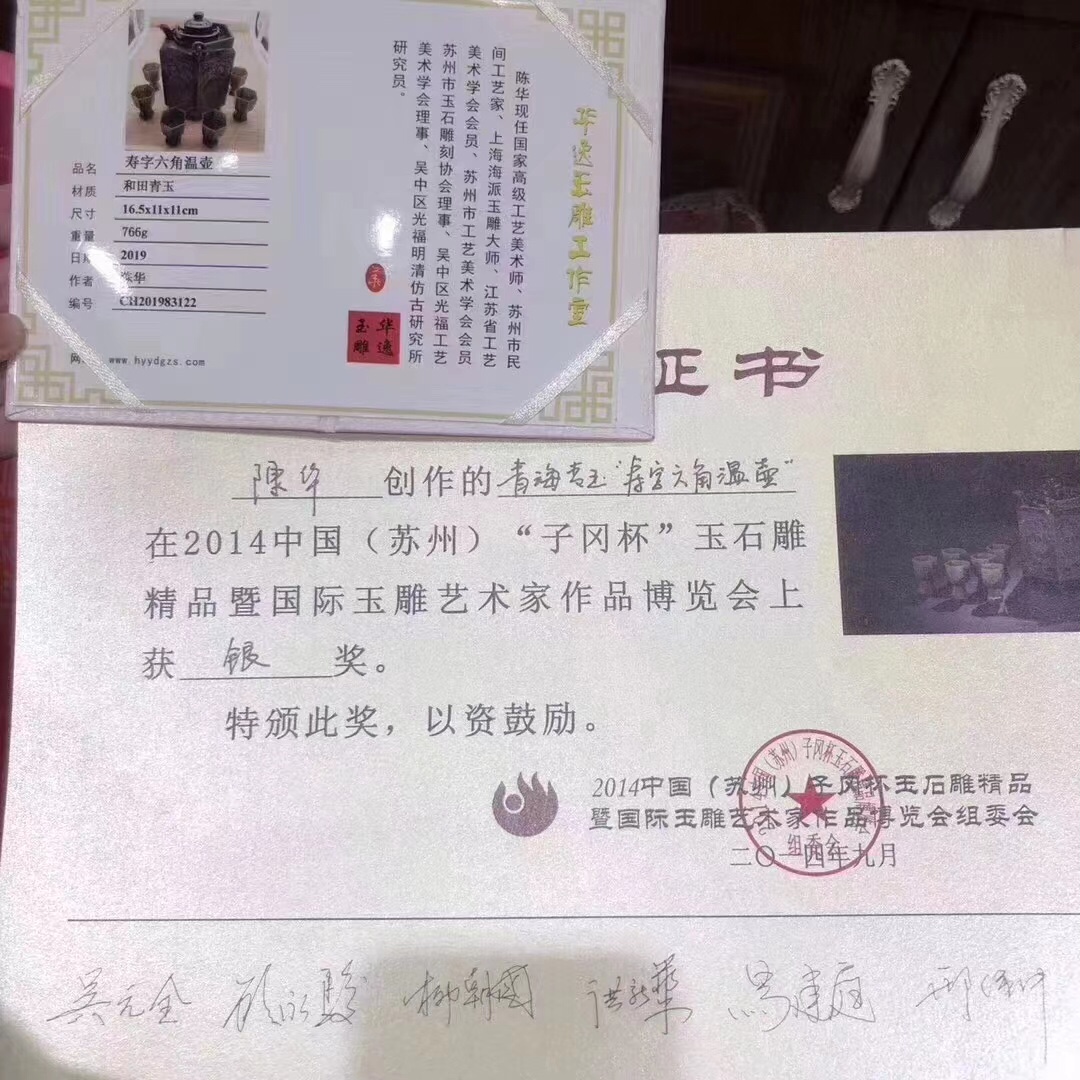 品名 寿字六角温壶
材质 和田青玉
尺寸 16.5x11x11cm
重量 766g
日期 2019
作者 陈华
编号 CH201983122
www.hyydgzs.com
华逸玉雕工作室
陈华现任国家高级工艺美术师、苏州市民
间工艺家、上海海派玉雕大师、江苏省工艺
美术学会会员、苏州市工艺美术学会会员
苏州市玉石雕刻协会理事、吴中区光福工艺
美术学会理事、吴中区光福明清仿古研究所
研究员。
华逸
玉雕
证书
陳华 创作的 青海青玉“寿字六角温壶”
在2014中国（苏州）“子冈杯”玉石雕
精品暨国际玉雕艺术家作品博览会上
获 银 奖。
特颁此奖，以资鼓励。
2014中国（苏州）子冈杯玉石雕精品
暨国际玉雕艺术家作品博览会组委会
二〇一四年九月
组委会
吴元全
马建庭